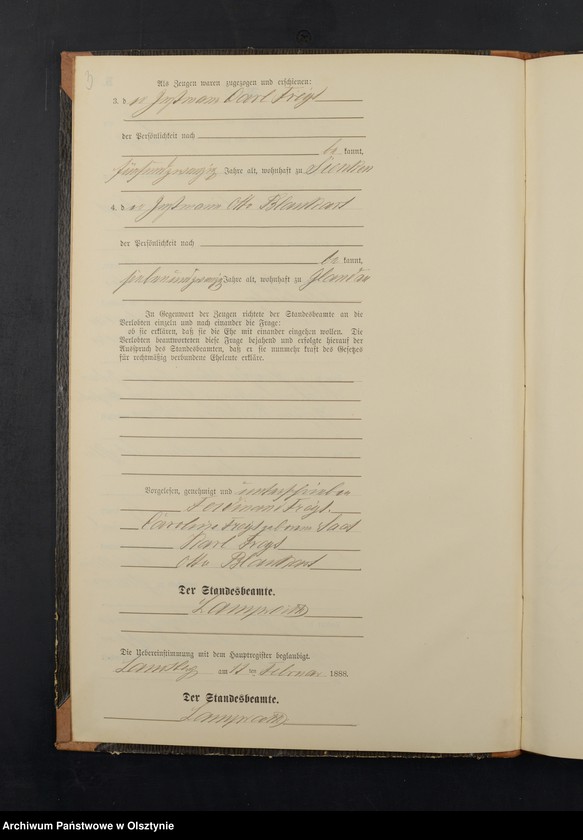 Als Zeugen waren zugezogen und erschienen:
3. der Instmann Carl Freyt
der Persönlichkeit nach
be kannt,
fünfundzwanzig Jahre alt, wohnhaft zu
4. der Instmann Otto Blankart
der Persönlichkeit nach
be kannt,
siebenundzwanzig Jahre alt, wohnhaft zu Glandau
In Gegenwart der Zeugen richtete der Standesbeamte an die
Verlobten einzeln und nach einander die Frage:
ob sie erklären, daß sie die Ehe mit einander eingehen wollen. Die
Verlobten beantworteten diese Frage bejahend und erfolgte hierauf der
Ausspruch des Standesbeamten, daß er sie nunmehr kraft des Gesetzes
für rechtmäßig verbundene Eheleute erkläre.
Vorgelesen, genehmigt und unterschrieben
Ferdinand Freyt.
Caroline Freyt geborene
Carl Freyt
Otto Blankart
Der Standesbeamte.
Die Uebereinstimmung mit dem Hauptregister beglaubigt.
am Februar 1888.
Der Standesbeamte.
Archiwum Państwowe w Olsztynie